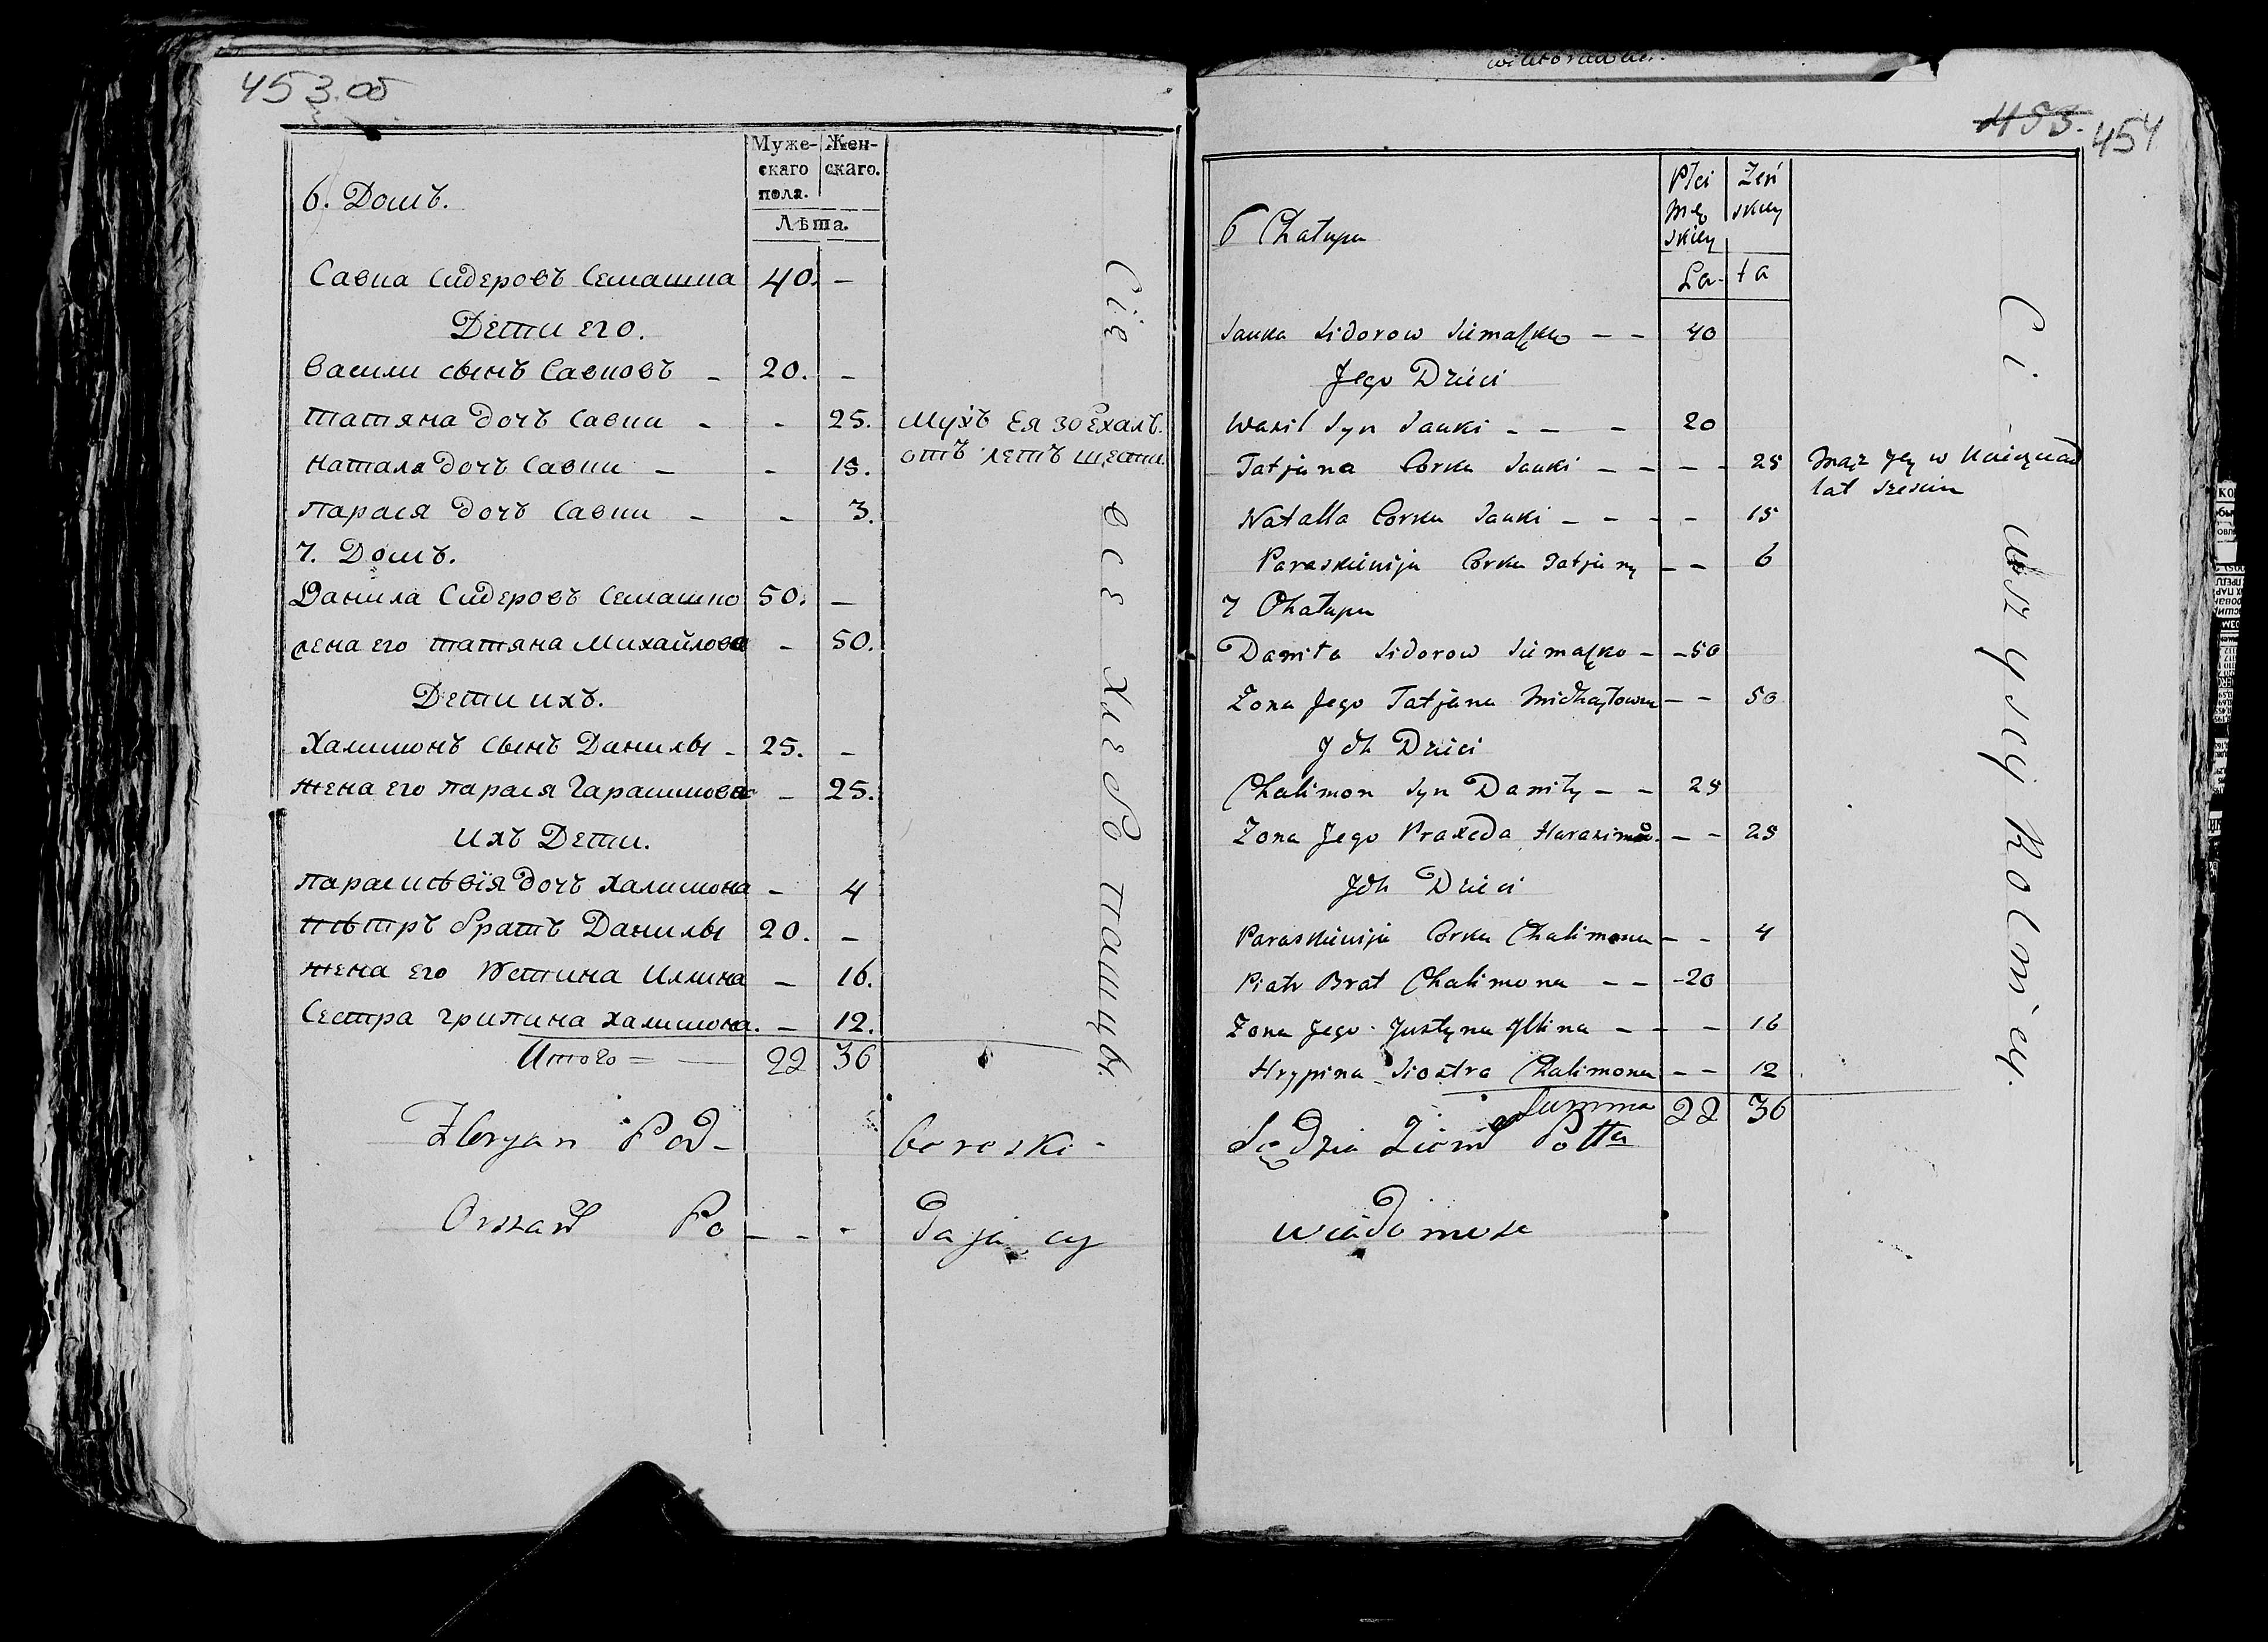 453.об
Муже- Жен-
скаго скаго.
пола.
Лѣта.
6. Домъ.
Савка Сидеровъ Семашка 40. –
Дети его.
Васили сынъ Савковъ – 20. –
Татяна дочъ Савки – – 25. Мужъ Ея зоехалъ.
отъ летъ шести.
Натала дочъ Савки – – 15.
Парася дочъ Савки – – 3.
7. Домъ.
Данила Сидеровъ Семашко 50. –
жена его татяна Михайлова – 50.
Дети ихъ.
Халимонъ сынъ Данилы – 25. –
жена его парася Гарасимова – 25.
Ихъ Дети.
Параскѣвія дочъ Халимона – 4
Пѣтръ братъ Данилы 20. –
жена его Юстина Илина – 16.
Сестра грипина халимона. – 12.
Итого = — 22 36
Сіе все хлебопашцы.
Floryan Pod- bereski -
Orszań Po – – - dający
453. 454
Płci Żeń
mę skiey
skiey
La- ta
6 Chałupa
Sauka Sidorow Siemaszko – – 40
Jego Dzieci
Wasil Syn Sauki – – – 20
Tatjana Corka Sauki – – – – 25 Mąż Jey w
lat sześciu
Natalla Corka Sauki – – – – 15
Paraskiewija Corka Tatjany – – 6
7 Chałupa
Daniła Sidorow Siemaszko – – 50
Żona Jego Tatjana Michayłowna – – 50
Jch Dzieci
Chalimon Syn Daniły – – 25
Żona Jego Praxeda Harasimow. – – 25
Jch Dzieci
Paraskiewija Corka Chalimona – – 4
Piotr Brat Chalimona – – – 20
Żona Jego Justyna Jllina – – – 16
Hrypina Siostra Chalimona – – 12
Summa 22 36
Ci wszyscy Rolnicy.
Sędzia Ziem Pottu
wiadomość